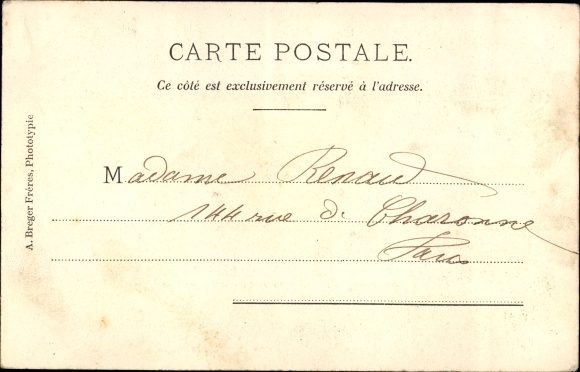 CARTE POSTALE.
Ce côté est exclusivement réservé à l'adresse.
Madame Renaud
144 rue d. Charonne
Paris
A. Breger Frères, Phototypie